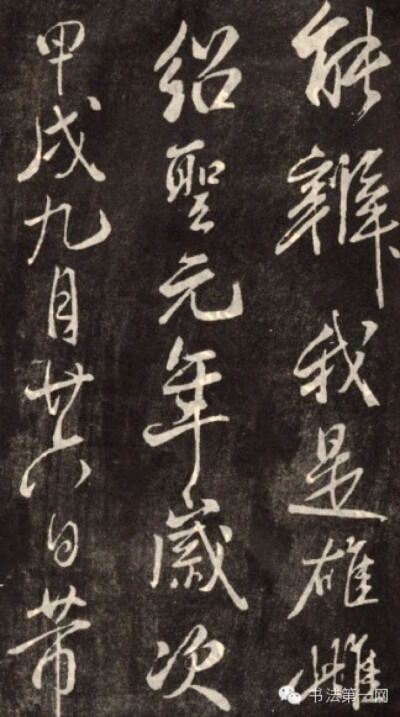 能辨我是雄雌
紹聖元年歲次
甲戌九月廿六日芾
书法第一网